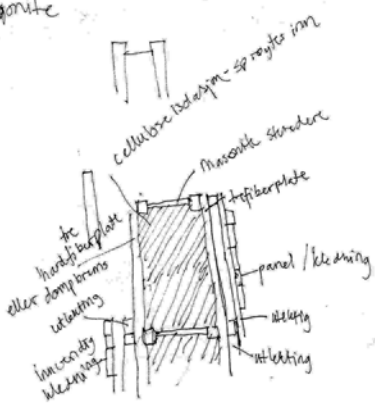 onite
cellulose isolasjon - sprøytes inn
masonite stendere
trefiberplate
tre
hardfiberplate
eller dampbrems
utlekting
innvendig
kledning
panel / kledning
utlekting